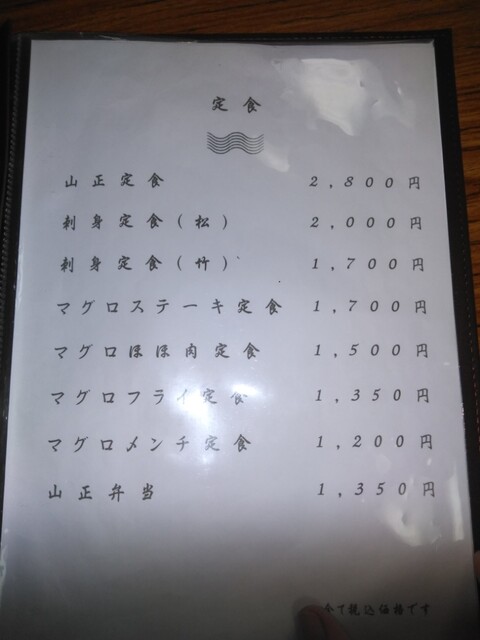 定食
山正定食 2,800円
刺身定食(松) 2,000円
刺身定食(竹) 1,700円
マグロステーキ定食 1,700円
マグロほほ肉定食 1,500円
マグロフライ定食 1,350円
マグロメンチ定食 1,200円
山正弁当 1,350円
全て税込価格です